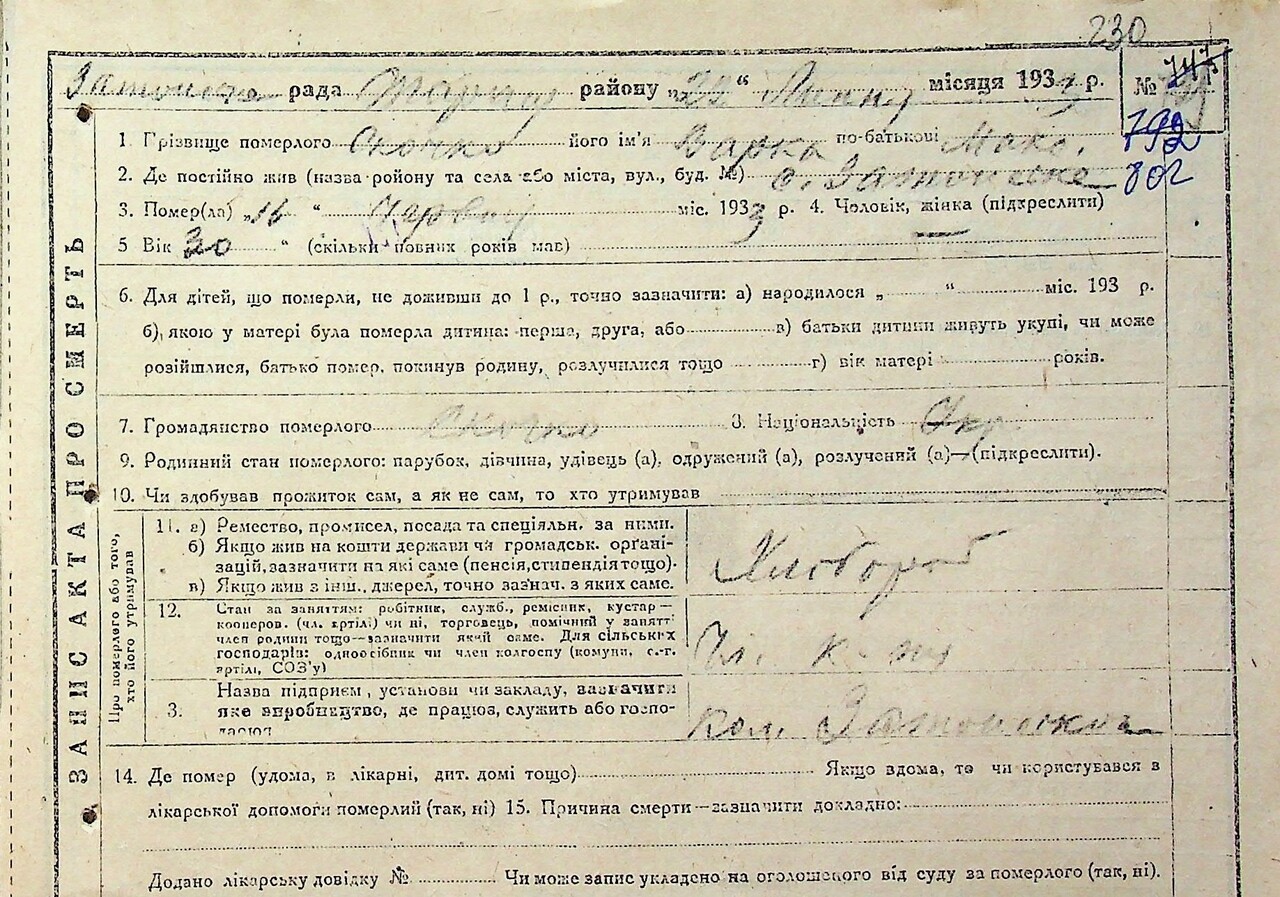 230
рада району „ “ місяця 193 р. №
792
802
1. Прізвище померлого його ім'я Варка по-батькові
2. Де постійно жив (назва району та села або міста, вул., буд. №) с.
3. Помер(ла) „16 “ Червня міс. 1933 р. 4. Чоловік, жінка (підкреслити)
5 Вік 30 “ (скільки повних років мав)
6. Для дітей, що померли, не доживши до 1 р., точно зазначити: а) народилося „ “ міс. 193 р.
б) якою у матері була померла дитина: перша, друга, або в) батьки дитини живуть укупі, чи може
розійшлися, батько помер, покинув родину, розлучилися тощо г) вік матері років.
7. Громадянство померлого 8. Національність Укр.
9. Родинний стан померлого: парубок, дівчина, удівець (а), одружений (а), розлучений (а)—(підкреслити).
10. Чи здобував прожиток сам, а як не сам, то хто утримував
ЗАПИС АКТА ПРО СМЕРТЬ
Про померлого або того,
хто його утримував
11. а) Ремество, промисел, посада та спеціяльн. за ними.
б) Якщо жив на кошти держави чи громадськ. органі-
зацій, зазначити на які саме (пенсія, стипендія тощо).
в) Якщо жив з інш. джерел, точно зазнач. з яких саме.
Хлібороб
12. Стан за заняттям: робітник, служб., ремісник, кустар —
кооперов. (чл. артілі) чи ні, торговець, помічний у занятті
член родини тощо—зазначити який саме. Для сільських
господарів: одноосібник чи член колгоспу (комуни, с.-г.
артілі, СОЗ'у)
Чл.
3. Назва підприєм., установи чи закладу, зазначити
яке виробництво, де працює, служить або госпо-
дарює
кол.
14. Де помер (удома, в лікарні, дит. домі тощо) Якщо вдома, то чи користувався з
лікарської допомоги померлий (так, ні) 15. Причина смерти—зазначити докладно:
Додано лікарську довідку № Чи може запис укладено на оголошеного від суду за померлого (так, ні).